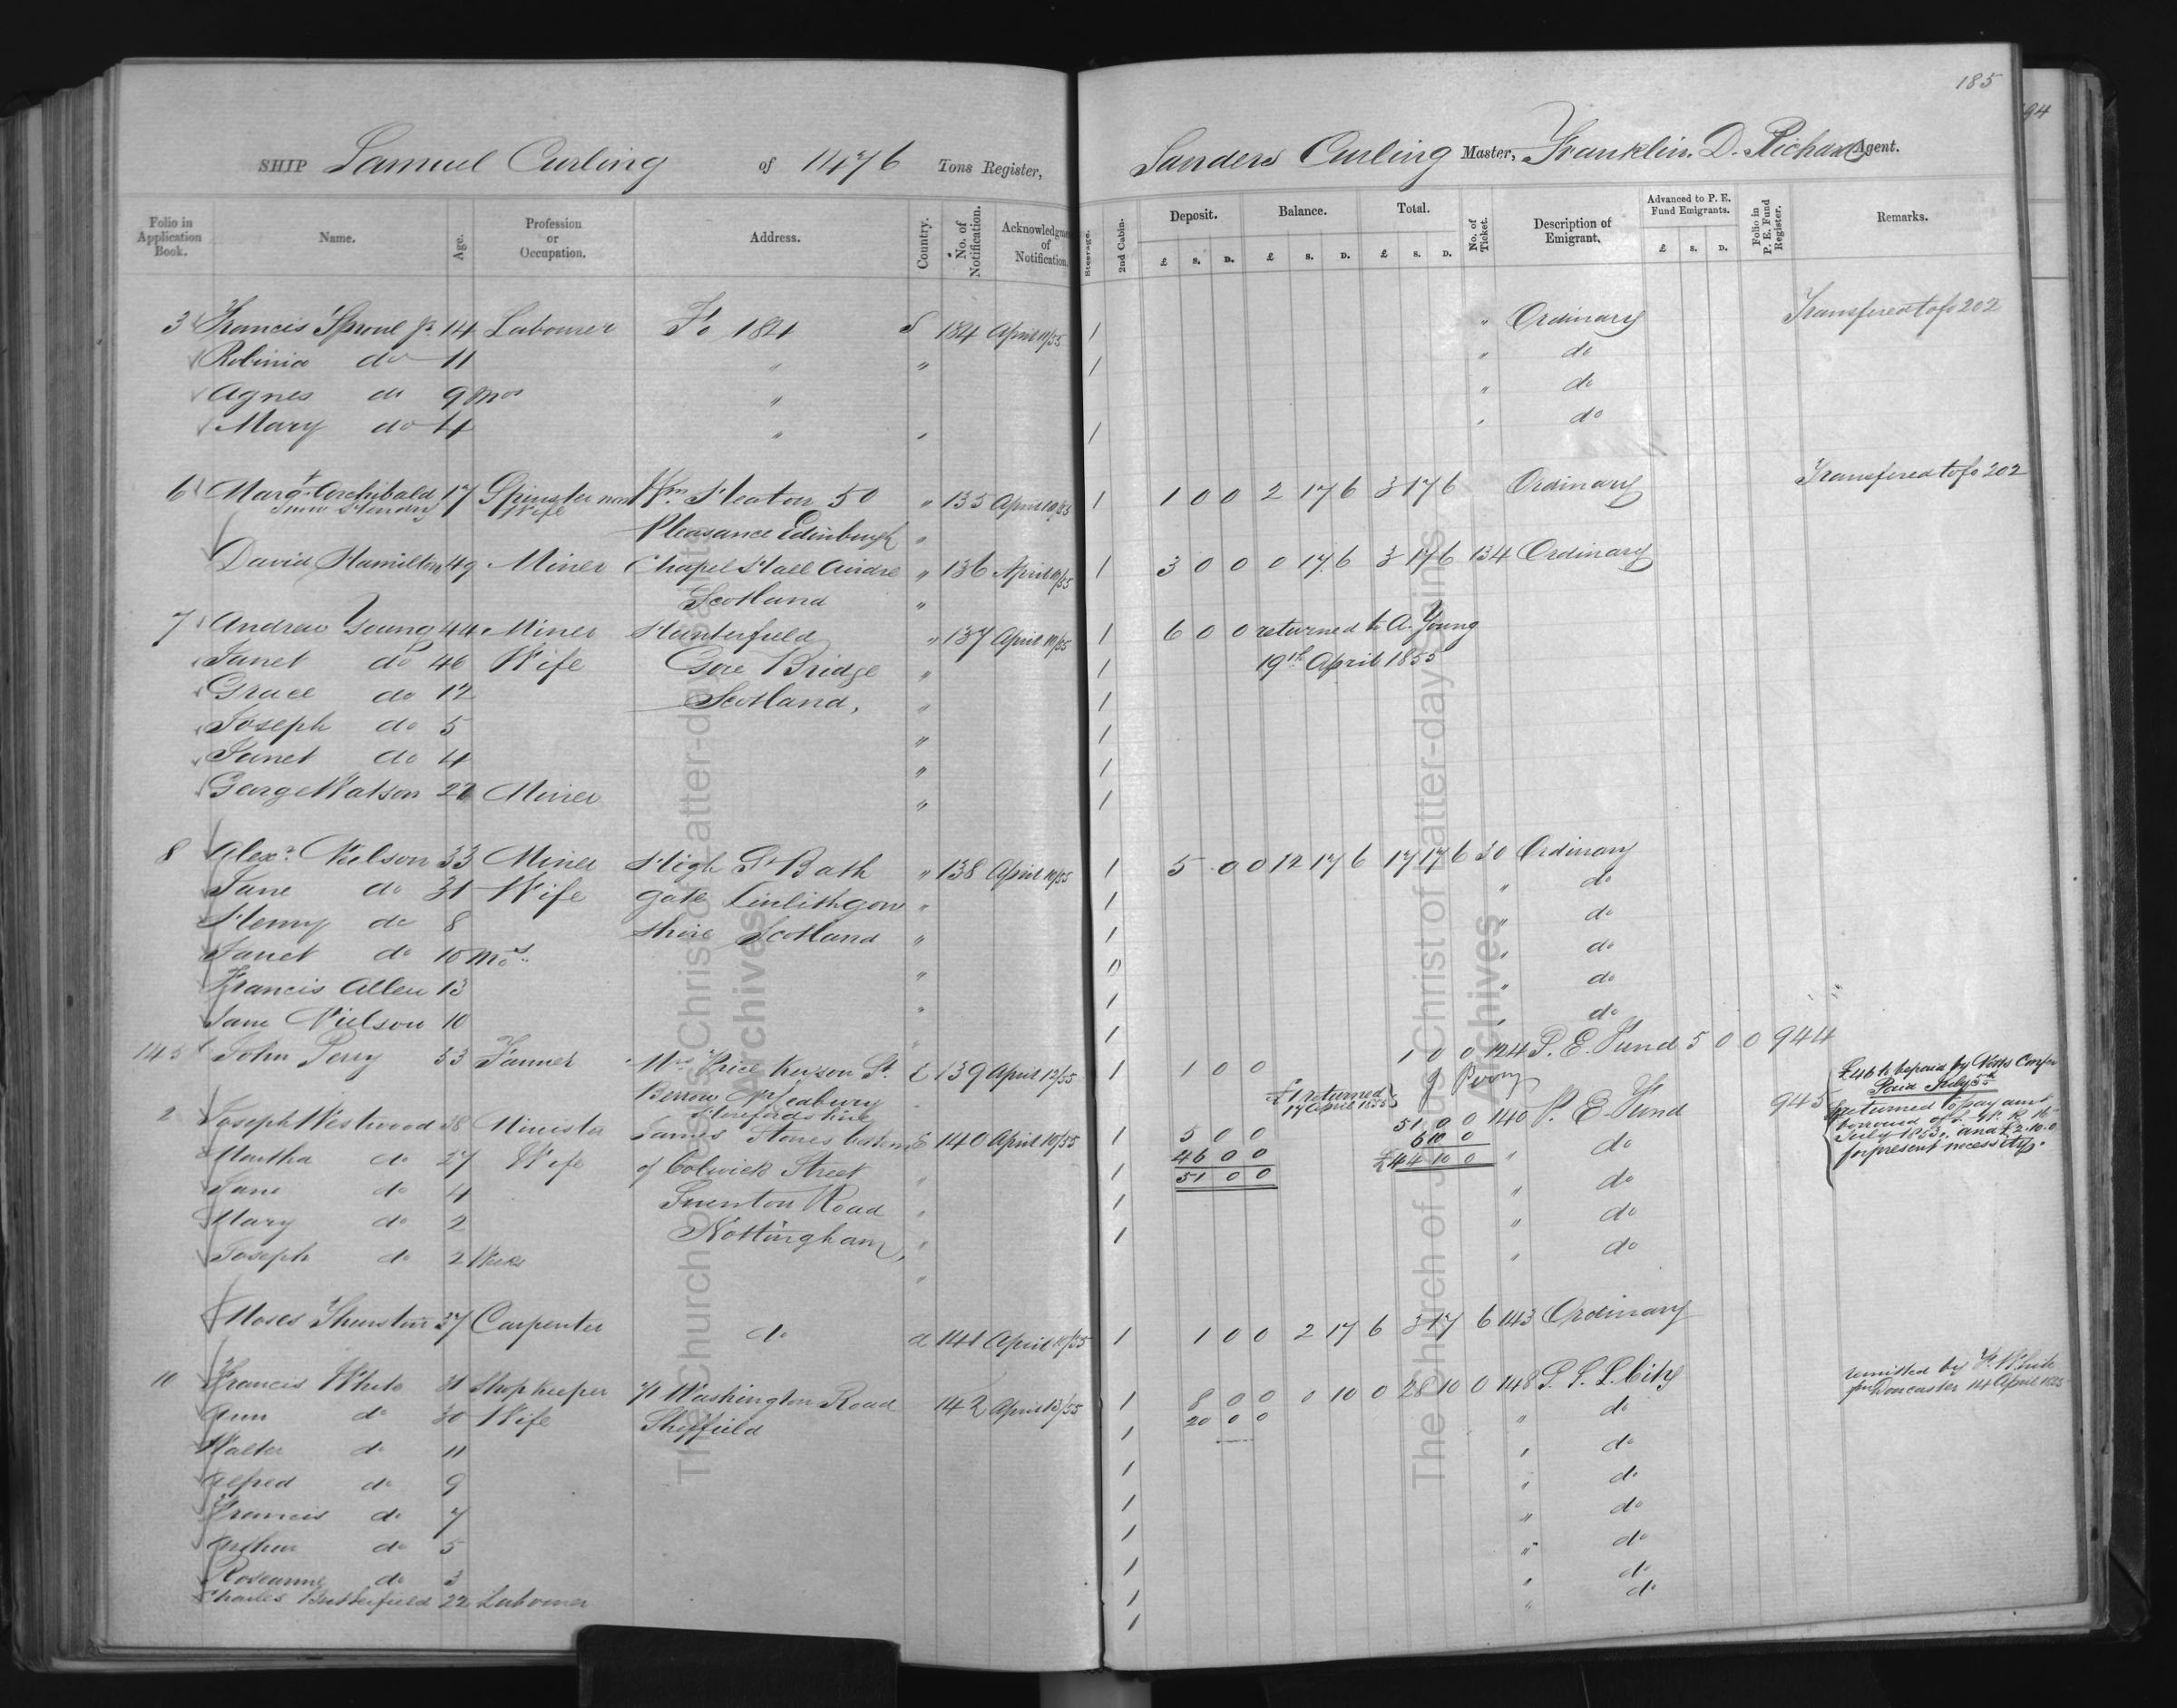 185
94
SHIP Samuel Curling of 1476 Tons Register, Sanders Curling Master, Franklin. D. Richards Agent.
Folio in Application Book. Name. Age. Profession or Occupation. Address. Country. No. of Notification. Acknowledgment of Notification. Steerage. 2nd Cabin. Deposit. £ s. D. Balance. £ s. D. Total. £ s. D. No. of Ticket. Description of Emigrant. Advanced to P. E. Fund Emigrants. £ s. D. Folio in P. E. Fund Register. Remarks.
3 Francis Sproul Jr 14 Labourer Fo 184 S 184 April 11/55 1 " Ordinary Transfered to fo 202
Robinia do 11 " " 1 " do
Agnes do 9 Mos " " do
Mary do 4 " " 1 " do
6 Margt Archibald 17 Spinster now Wm Heaton 50 " 135 April 10/55 1 1 0 0 2 17 6 3 17 6 Ordinary Transfered to fo 202
now Hendry Wife Pleasance Edinburgh "
David Hamilton 49 Miner Chapel Hall Airdre " 136 April 10/55 1 3 0 0 0 17 6 3 17 6 134 Ordinary
Scotland "
7 Andrew Young 44 Miner Hunterfield " 137 April 10/55 1 6 0 0 returned to A. Young
Janet do 46 Wife Gore Bridge " 1 19th April 1855
Grace do 12 Scotland, " 1
Joseph do 5 " 1
Janet do 4 " 1
George Watson 22 Miner " 1
8 Alexr Neilson 33 Miner High St Bath " 138 April 10/55 1 5 0 0 12 17 6 17 17 6 30 Ordinary
Jane do 31 Wife gate Linlithgow " 1 " do
Henry do 8 shire Scotland " 1 " do
Janet do 10 Mos. " 0 " do
Francis Allen 13 " 1 " do
Jane Neilson 10 " 1 " do
145 John Perry 33 Tanner Mrs Price Keyson St. E 139 April 12/55 1 1 0 0 1 0 0 124 P. E. Fund 5 0 0 944
Berrow Nr Ledbury £1 returned J Perry
Herefordshire 17 April 1855
2 Joseph Westwood 38 Minister James Stones bottom E 140 April 10/55 1 5 0 0 51 0 0 140 P. E. Fund 945
Martha do 27 Wife of Colwick Street " 1 46 0 0 6 10 0 " do
Jane do 4 Snenton Road " 1 51 0 0 £44 10 0 " do
Mary do 2 Nottingham, " 1 " do
Joseph do 2 Weeks " " do
£46 to be paid by Notts Confer
Paid July 5th
returned to pay amt
borrowed of S. W. R 16
July 1853, and £2.10.0
for present necessity.
Moses Thurston 37 Carpenter do a 141 April 10/55 1 1 0 0 2 17 6 3 17 6 143 Ordinary
10 Francis White 31 Shop keeper 71 Washington Road 142 April 13/55 1 8 0 0 0 10 0 28 10 0 148 P. S. L. City remitted by F. White
Ann do 30 Wife Sheffield 1 20 0 0 " do from Doncaster 14 April 1855
Walter do 11 1 " do
Alfred do 9 1 " do
Francis do 7 1 " do
Arthur do 5 1 " do
Roseanne do 3 1 " do
Charles Butterfield 22 Labourer 1 " do
The Church of Jesus Christ of Latter-day Saints
Archives
The Church of Jesus Christ of Latter-day Saints
Archives